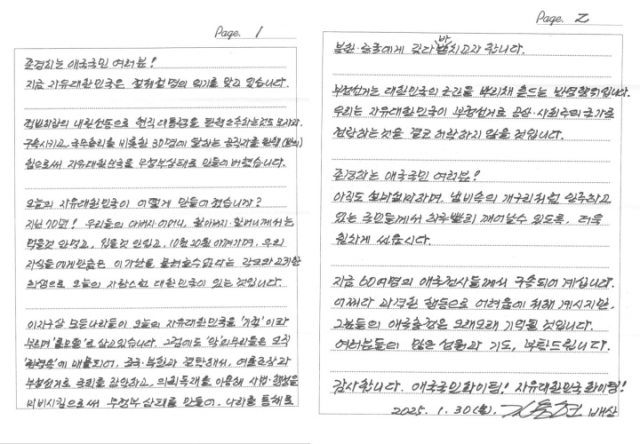 Page. 1
존경하는 애국국민 여러분!
지금 자유대한민국은 절체절명의 위기를 맞고 있습니다.
전방위적 내란선동으로 현직 대통령을 탄핵소추하는것도 모자라
구속시키고, 국무총리를 비롯한 30명에 달하는 공직자를 탄핵(발의)
함으로써 자유대한민국을 무정부상태로 만들어버렸습니다.
오늘의 자유대한민국이 어떻게 만들어졌습니까?
지난 70년! 우리들의 아버지·어머니, 할아버지·할머니께서는
먹을것 안먹고, 입을것 안입고, 10원 20원 아껴가며, 우리
자식들에게만큼은 이 가난을 물려줄수 없다는 각오와 고귀한
희생으로 오늘의 자랑스런 대한민국이 있는 것입니다.
이 지구상 모든나라들이 오늘의 자유대한민국을 '기적'이라
부르며 '롤모델'로 삼고있습니다. 그럼에도 '악'의무리들은 오직
에 매몰되어, 중국·북한과 결탁해서, 여론조작과
부정선거로 국회를 장악하고, 의회독재를 이용해 사법·행정을
마비시킴으로써 무정부상태로 만들어, 나라를 통째로
Page. 2
북한·중국에게 갖다 바치고자 합니다.
부정선거는 대한민국의 근간을 뿌리채 흔드는 반역행위입니다.
우리는 자유대한민국이 부정선거로 공산·사회주의 국가로
전락하는것을 결코 허락하지 않을 것입니다.
존경하는 애국국민 여러분!
아직도 설마설마하며, 냄비속의 개구리처럼 안주하고
있는 국민들께서 하루빨리 깨어날수 있도록, 더욱
힘차게 싸웁시다.
지금 60여명의 애국전사들께서 구속되어 계십니다.
어쩌다 과격한 행동으로 어려움에 처해 계시지만,
그분들의 애국충정은 오래오래 기억될 것입니다.
여러분들의 많은 성원과 기도, 부탁드립니다.
감사합니다. 애국국민 화이팅! 자유대한민국 화이팅!
2025. 1. 30(목), 김용현 배상